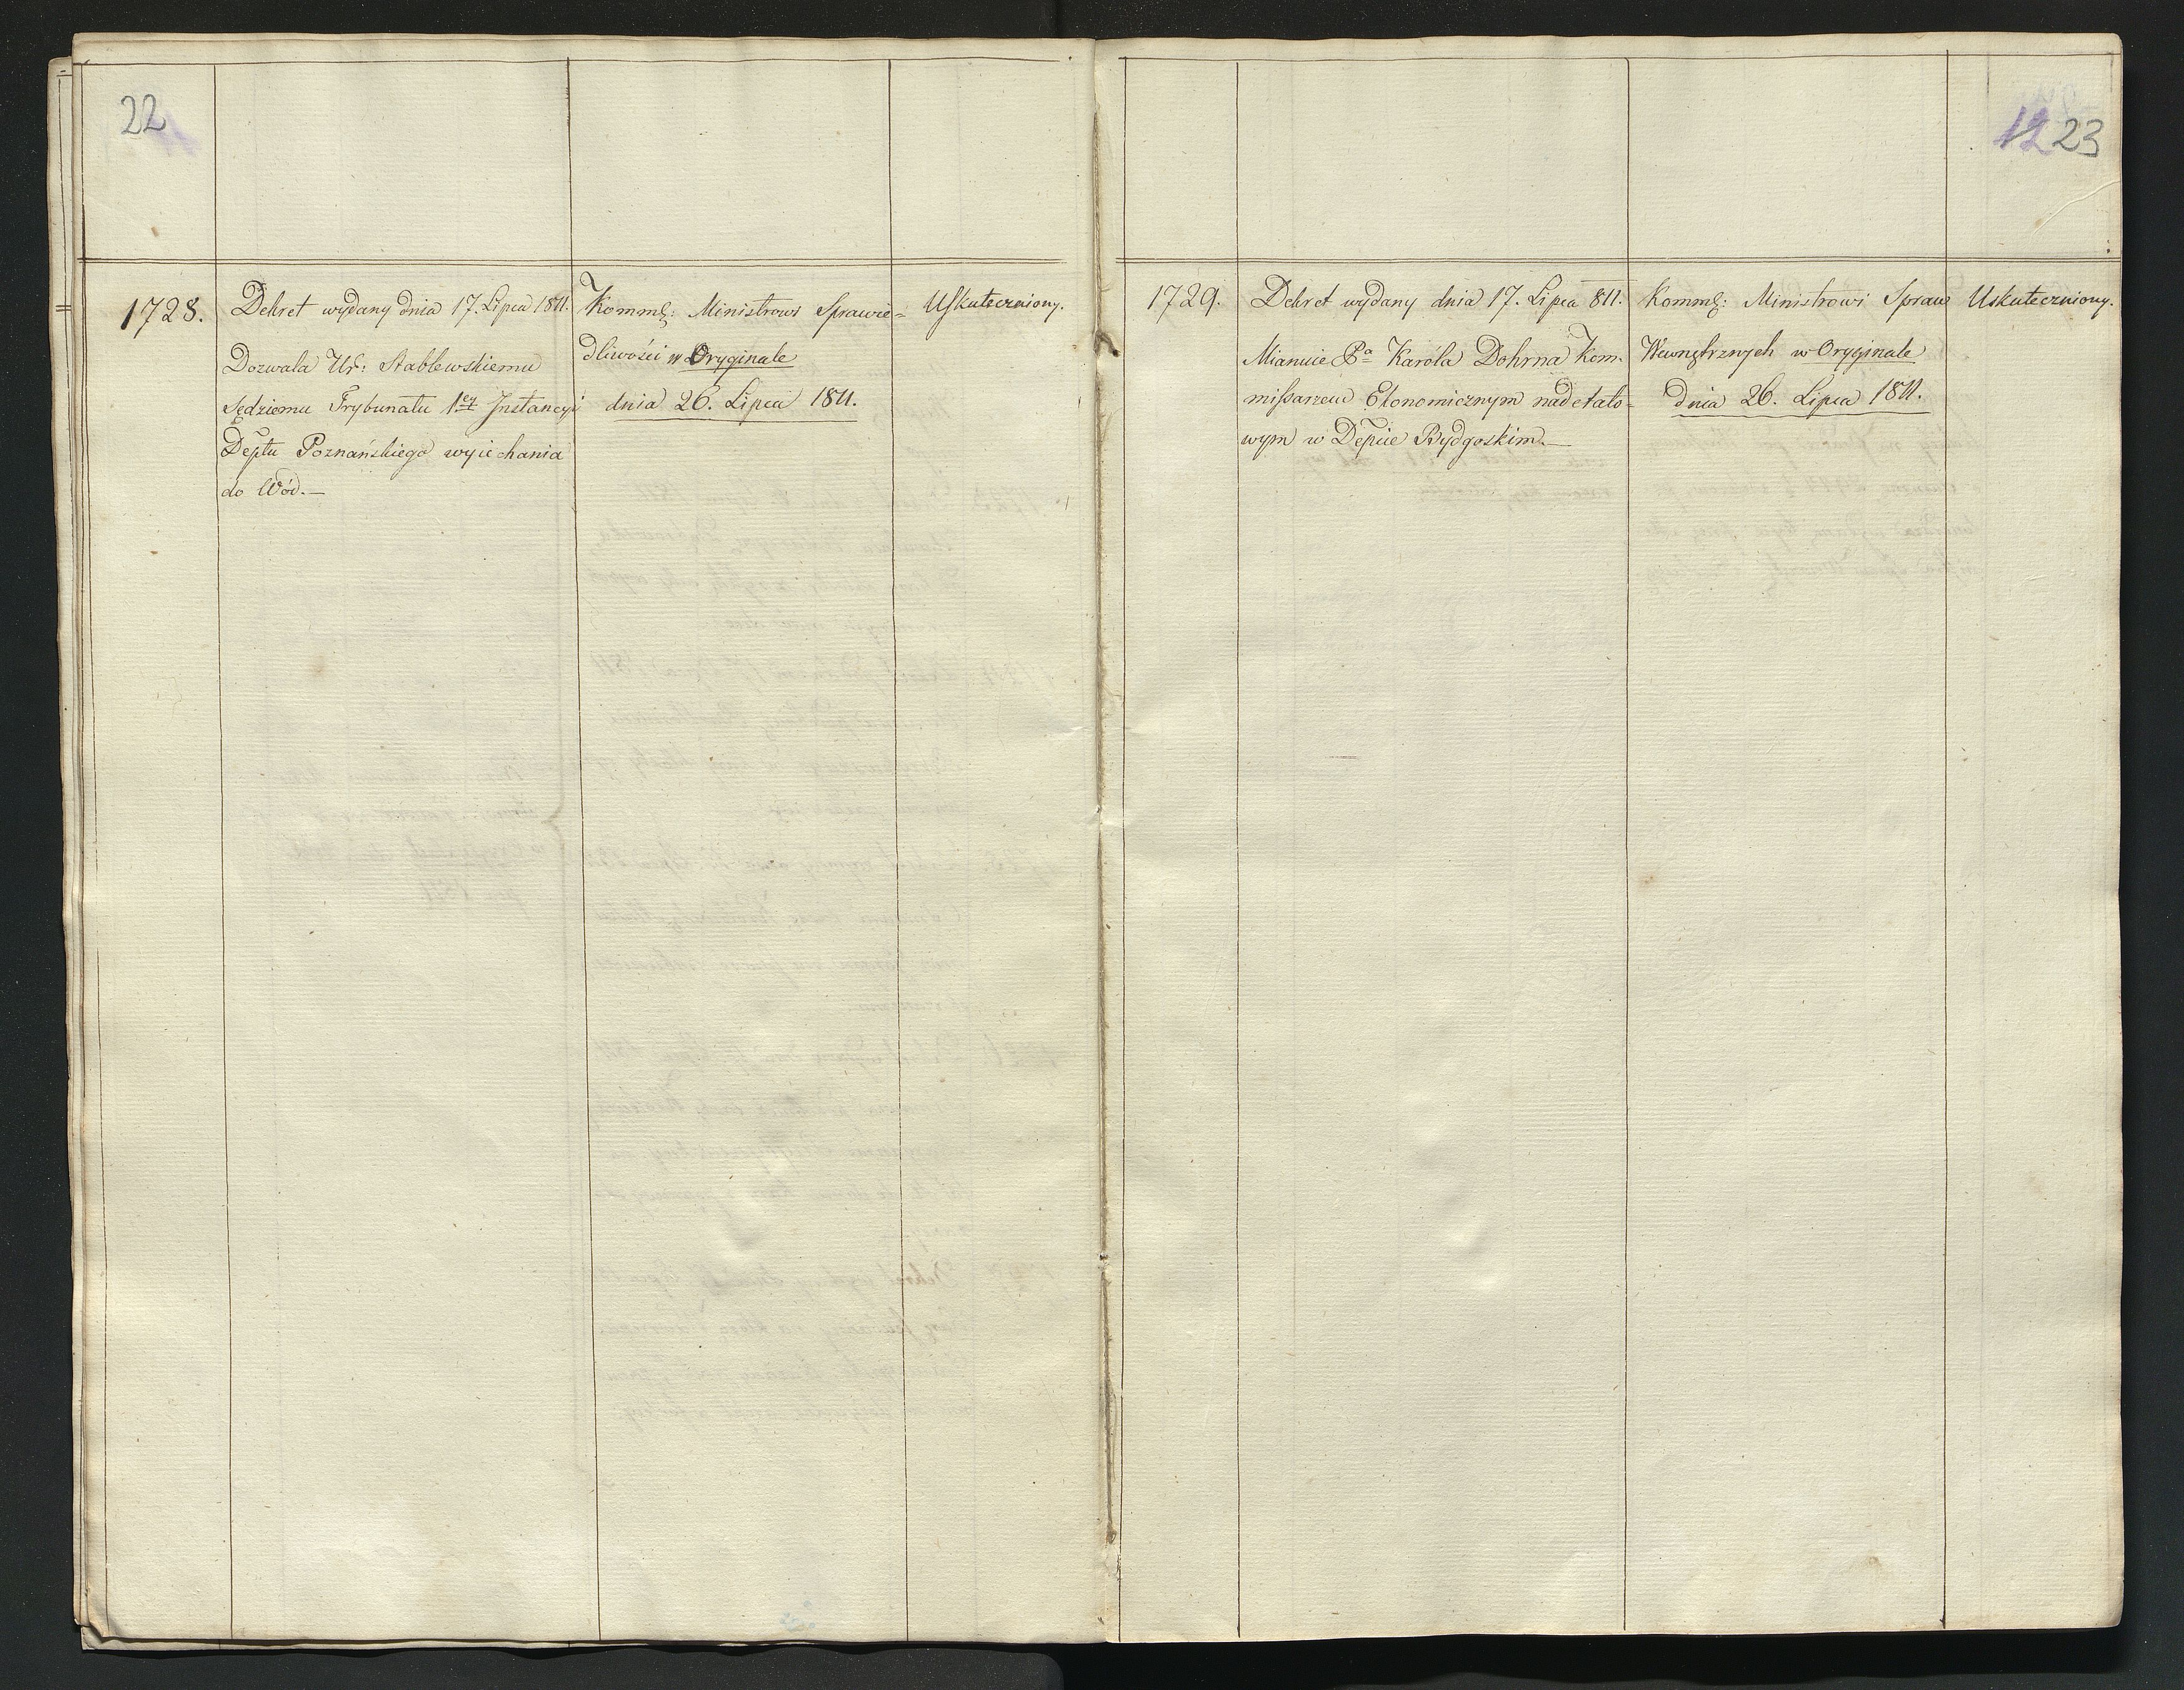 22
1728.
Dekret wydany dnia 17. Lipca 1811.
Dozwala Ur: Stablewskiemu
Sędziemu Trybunatu 1ey Jnstancyi
Deptu Poznańskiego wyiechania
do Wód.—
Kommę: Ministrowi Sprawie=
dliwości w Oryginale
dnia 26. Lipca 1811.
Uskuteczniony.
12 23
1729.
Dekret wydany dnia 17. Lipca 811.
Mianuie Pa Karóla Dohrna Kom-
missarzem Ekonomicznym nadetato-
wym w Depcie Bydgoskim.—
Kommę: Ministrowi Spraw
Wewnętrznych w Oryginale
dnia 26. Lipca 1811.
Uskuteczniony.